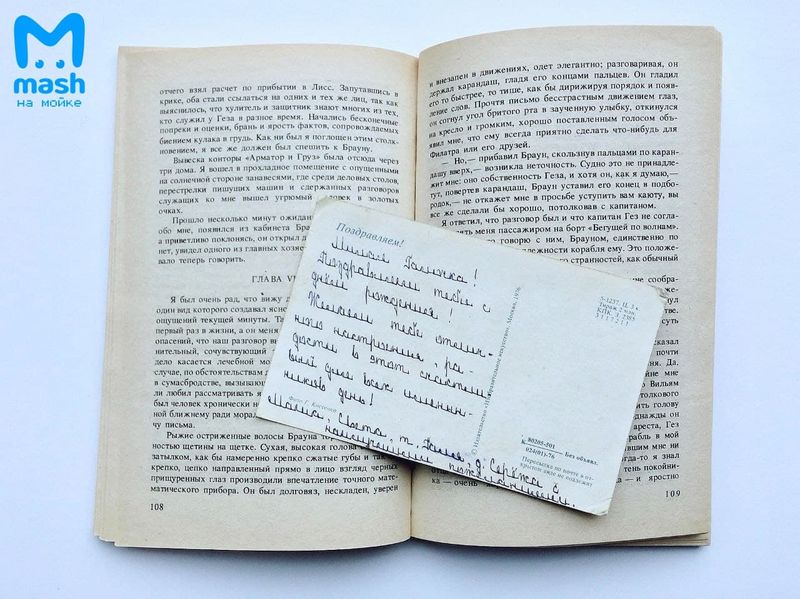 mash
на мойке
отчего взял расчет по прибытии в Лисс. Запутавшись в
крике, оба стали ссылаться на одних и тех же лиц, так как
выяснилось, что хулитель и защитник знают многих из тех,
кто служил у Геза в разное время. Начались бесконечные
попреки и оценки, брань и ярость фактов, сопровождаемых
биением кулака в грудь. Как ни был я поглощен этим столк-
новением, я все же должен был спешить к Брауну.
Вывеска конторы «Арматор и Груз» была отсюда через
три дома. Я вошел в прохладное помещение с опущенными
на солнечной стороне занавесями, где, среди деловых столов,
перестрелки пишущих машин и сдержанных разговоров
служащих ко мне вышел угрюмый человек в золотых
очках.
Прошло несколько минут ожидан
обо мне, появился из кабинета Бра
а приветливо поклонясь, он открыл д
нет, увидел одного из главных хозяе
теперь говорить.
ГЛАВА V
Я был очень рад, что вижу д
один вид которого создавал ясн
ощущений текущей минуты. Та
первый раз в жизни, а он меня
опасений, что наш разговор вы
нительный, сочувствующий
касается лечебной мо
случае, по обстоятельствам
в сумасбродстве, вызываю
ли любил рассматривать я
был человек хронически н
ной ближнему ради морал
чу письма.
Рыжие остриженные волосы Брауна то
ности щетины на щетке. Сухая, высокая голова с
затылком, как бы намеренно крепко сжатые губы и так
крепко, цепко направленный прямо в лицо взгляд черных
прищуренных глаз производили впечатление точного мате-
матического прибора. Он был долговяз, нескладен, уверен
108
и внезапен в движениях, одет элегантно; разговаривая, он
держал карандаш, гладя его концами пальцев. Он гладил
его то быстрее, то тише, как бы дирижируя порядок и появ-
ление слов. Прочтя письмо бесстрастным движением глаз,
он согнул угол бритого рта в заученную улыбку, откинулся
на кресло и громким, хорошо поставленным голосом объ-
явил мне, что ему всегда приятно сделать что-нибудь для
Филатра или его друзей.
— Но,— прибавил Браун, скользнув пальцами по каран-
дашу вверх,— возникла неточность. Судно это не принадле-
жит мне; оно собственность Геза, и хотя он, как я думаю,—
тут, повертев карандаш, Браун уставил его конец в подбо-
родок,— не откажет мне в просьбе уступить вам каюту, вы
все же сделали бы хорошо, потолковав с капитаном.
Я ответил, что разговор был и что капитан Гез не согла-
меня пассажиром на борт «Бегущей по волнам».
говорю с ним, Брауном, единственно по
длежности корабля ему. Это положе-
его странностей, как обычный
сообра-
сказал
почти
Да.
мне
Вильям
толкового
голову
однажды он
ареста, Гез
рабль в мой
слышим мне он
когда-то я знал
очень покойни-
ка,— очень
— и яростно
109
Поздравляем!
Милая Галочка!
Поздравляем тебя с
днём рождения!
Желаем тебе отлич-
ного настроения, ра-
дости в этот счастли-
вый день всех именин-
ников день!
Света, т. д. Серёжа с
наилучшими пожеланиями.
Фото Г. Костенко
© Издательство «Изобразительное искусство». Москва. 1976
5-1237. Ц. 3 к.
Тираж 2 млн.
80205-501
024(01)-76
Без объявл.
Пересылка по почте в от-
крытом виде не подлежит